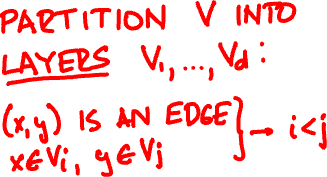 PARTITION V INTO
LAYERS V₁, ..., Vd :
(x,y) IS AN EDGE
x∈Vi, y∈Vj } → i<j